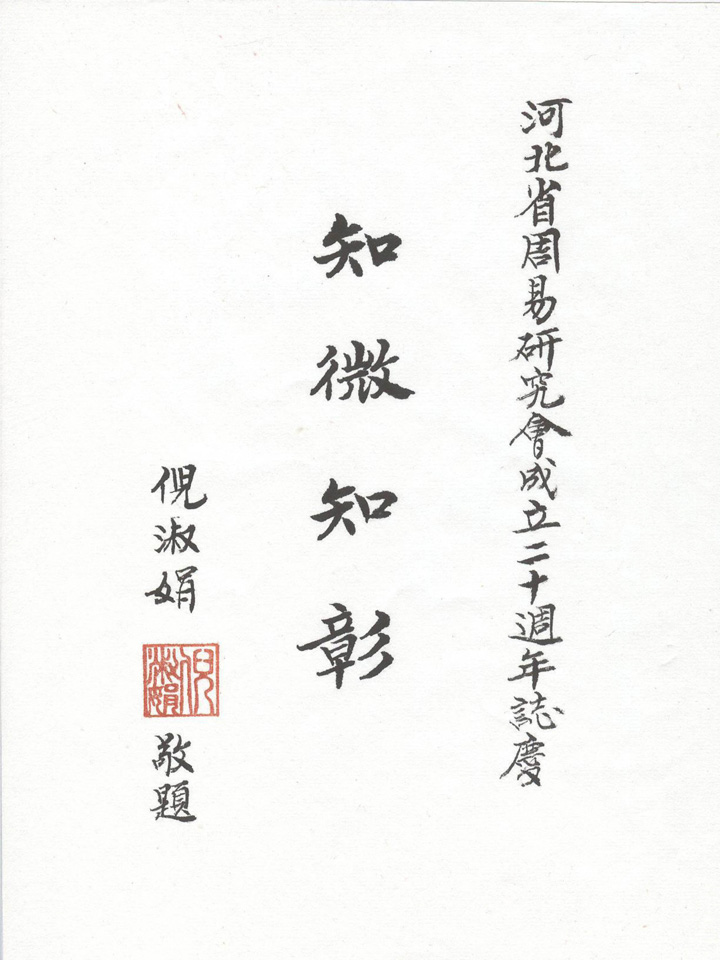 河北省周易研究會成立二十週年誌慶
知微知彰
倪淑娟
倪淑娟
敬題